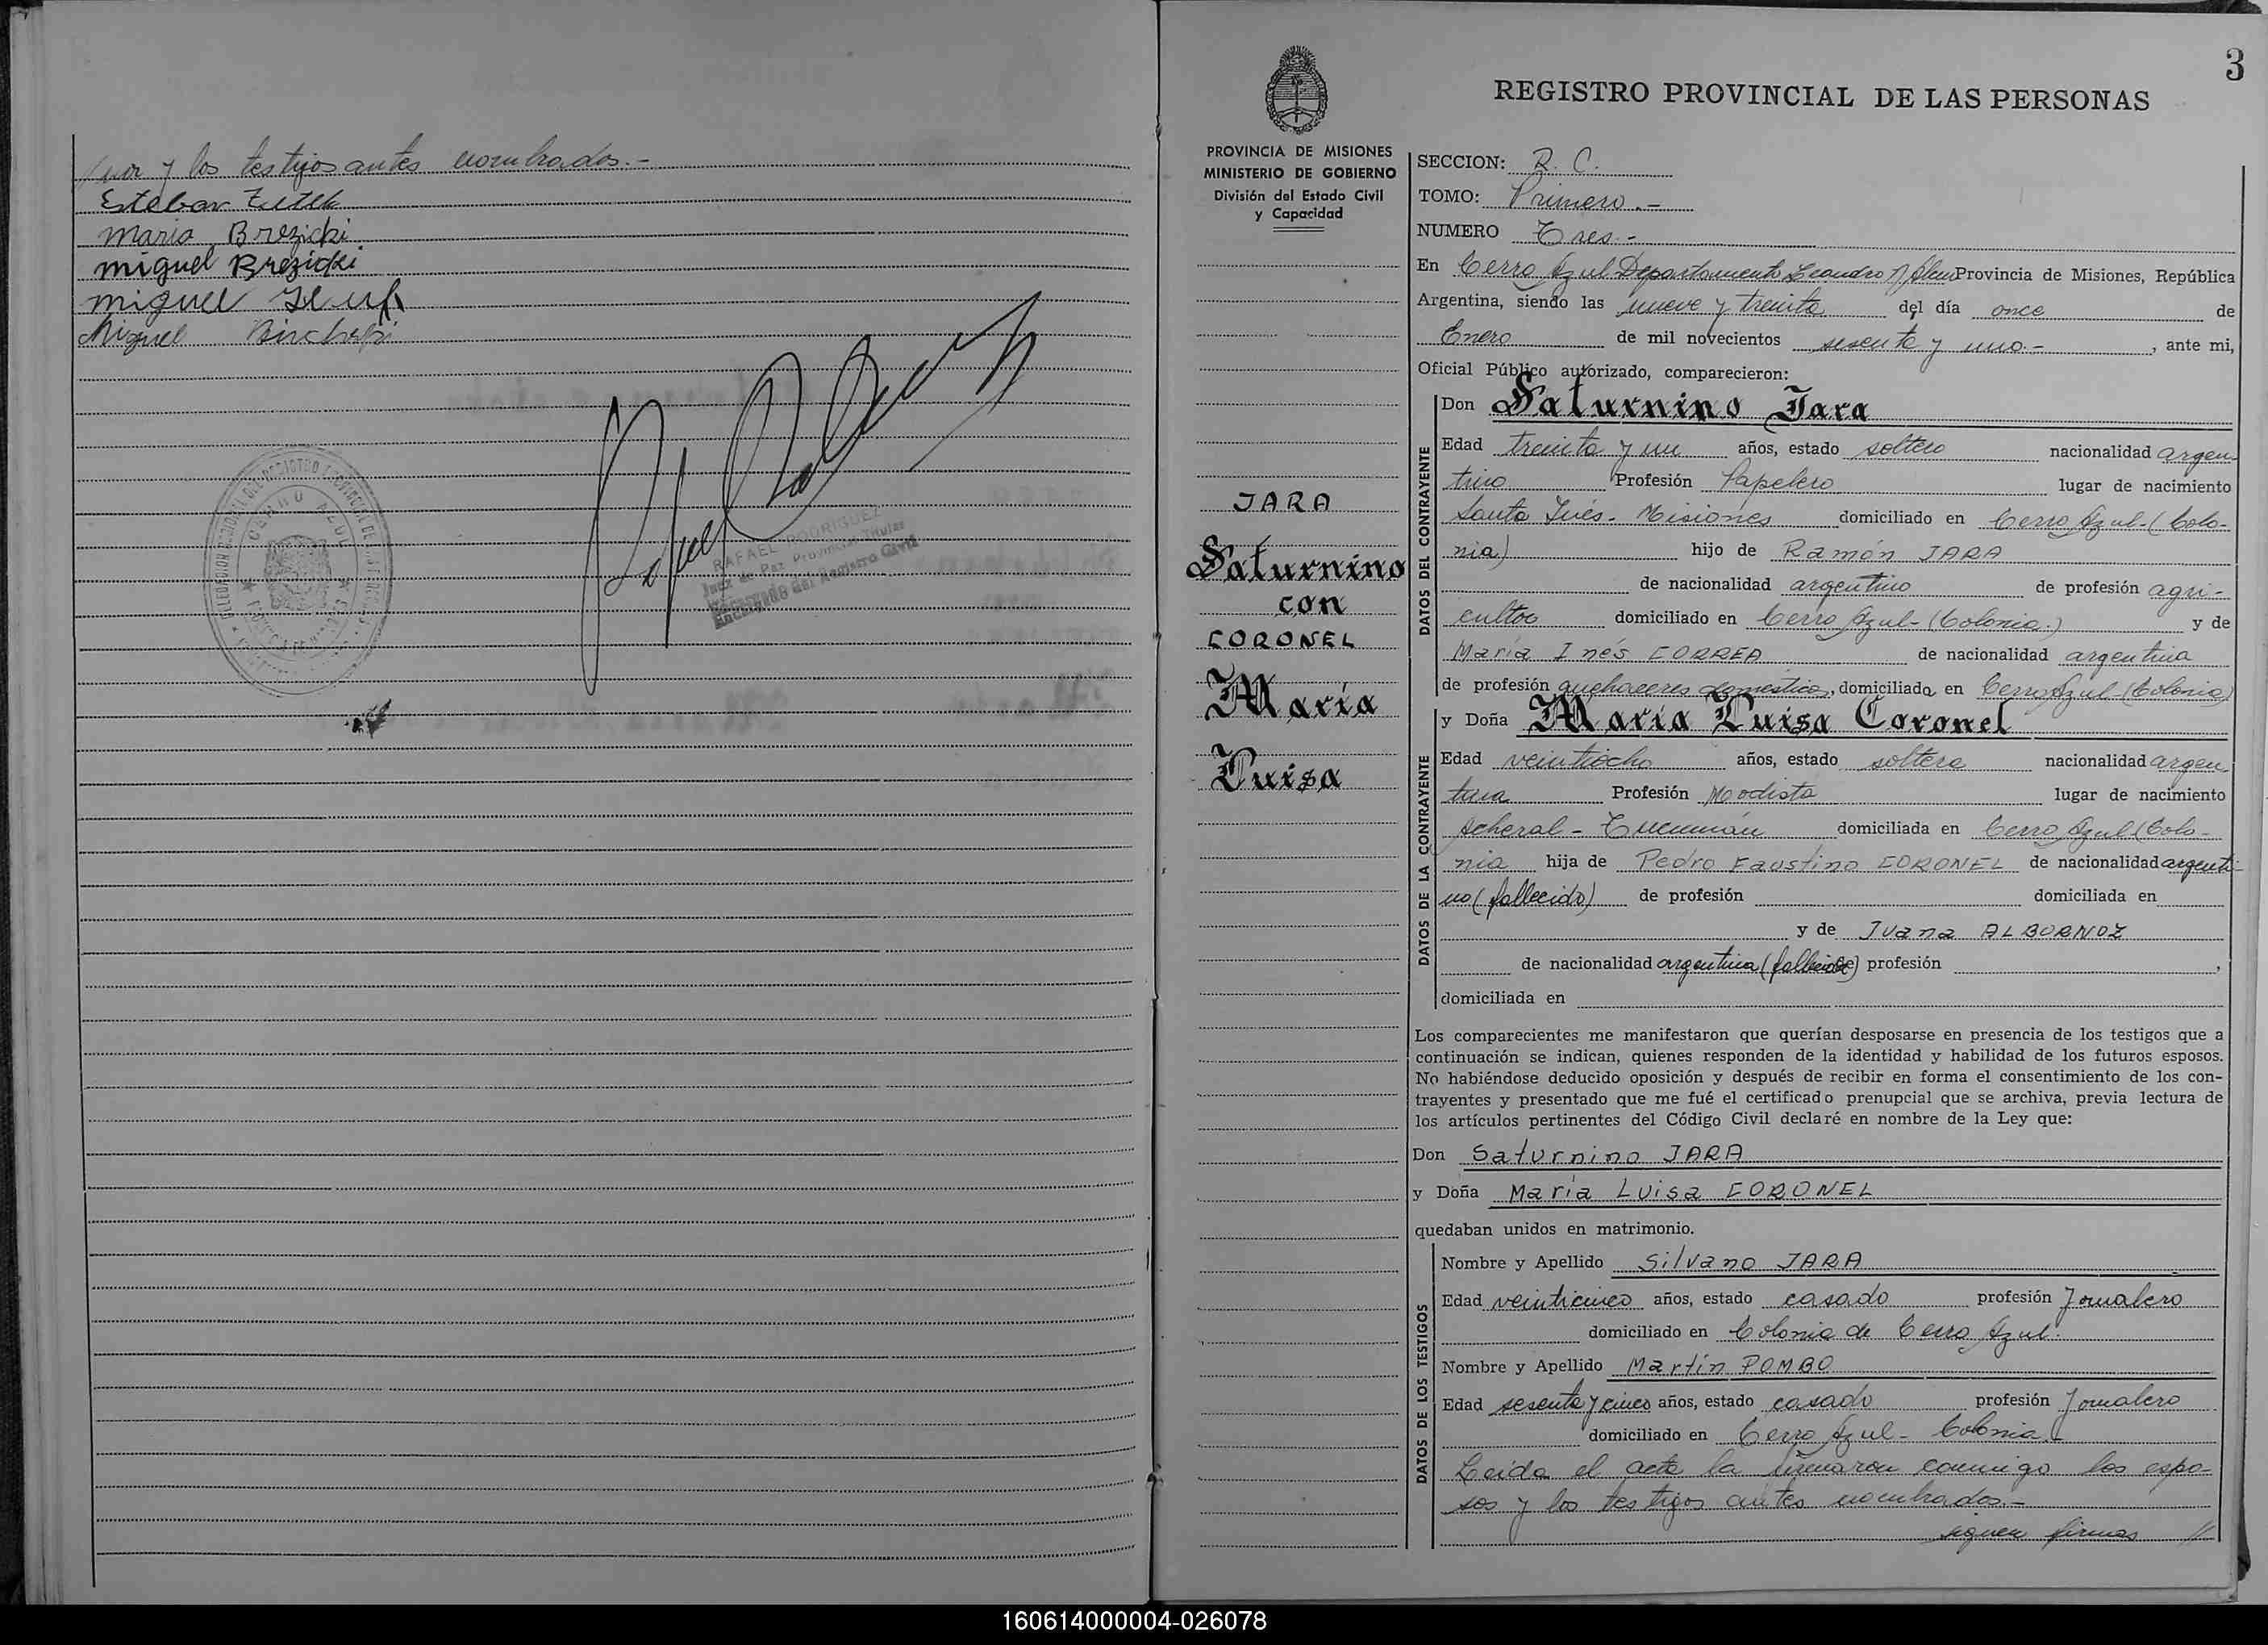 y los testigos antes nombrados.-
Esteban
Maria Brezicki
Miguel Brezicki
Miguel
Miguel
CERRO AZUL
RAFAEL RODRIGUEZ
Juez de Paz Provincial Titular
Encargado del Registro Civil
3
REGISTRO PROVINCIAL DE LAS PERSONAS
PROVINCIA DE MISIONES
MINISTERIO DE GOBIERNO
División del Estado Civil
y Capacidad
JARA
Saturnino
con
CORONEL
Maria
Luisa
SECCION: R. C.
TOMO: Primero.-
NUMERO Tres.-
En Cerro Azul Departamento Leandro N. Alem Provincia de Misiones, República
Argentina, siendo las nueve y treinta del día once de
Enero de mil novecientos sesenta y uno.- , ante mi,
Oficial Público autorizado, comparecieron:
DATOS DEL CONTRAYENTE
Don Saturnino Jara
Edad treinta y un años, estado soltero nacionalidad argen
tino Profesión Papelero lugar de nacimiento
Santa Inés - Misiones domiciliado en Cerro Azul-(Colo-
nia) hijo de Ramón JARA
de nacionalidad argentino de profesión agri-
cultor domiciliado en Cerro Azul-(Colonia.) y de
María Inés CORREA de nacionalidad argentina
de profesión quehaceres domésticos, domiciliada en Cerro Azul-(Colonia)
DATOS DE LA CONTRAYENTE
y Doña Maria Luisa Coronel
Edad veintiocho años, estado soltera nacionalidad argen
tina Profesión Modista lugar de nacimiento
Acheral - Tucumán domiciliada en Cerro Azul (Colo-
nia hija de Pedro Faustino CORONEL de nacionalidad argenti-
no (fallecido) de profesión domiciliada en
y de Juana ALBORNOZ
de nacionalidad argentina (fallecida) profesión ,
domiciliada en
Los comparecientes me manifestaron que querían desposarse en presencia de los testigos que a
continuación se indican, quienes responden de la identidad y habilidad de los futuros esposos.
No habiéndose deducido oposición y después de recibir en forma el consentimiento de los con-
trayentes y presentado que me fué el certificado prenupcial que se archiva, previa lectura de
los artículos pertinentes del Código Civil declaré en nombre de la Ley que:
Don Saturnino JARA
y Doña María Luisa CORONEL
quedaban unidos en matrimonio.
DATOS DE LOS TESTIGOS
Nombre y Apellido Silvano JARA
Edad veinticinco años, estado casado profesión Jornalero
domiciliado en Colonia de Cerro Azul.
Nombre y Apellido Martín POMBO
Edad sesenta y cinco años, estado casado profesión Jornalero
domiciliado en Cerro Azul - Colonia.
Leida el acta la firmaron conmigo los espo-
sos y los testigos antes nombrados.-
siguen firmas //
160614000004-026078